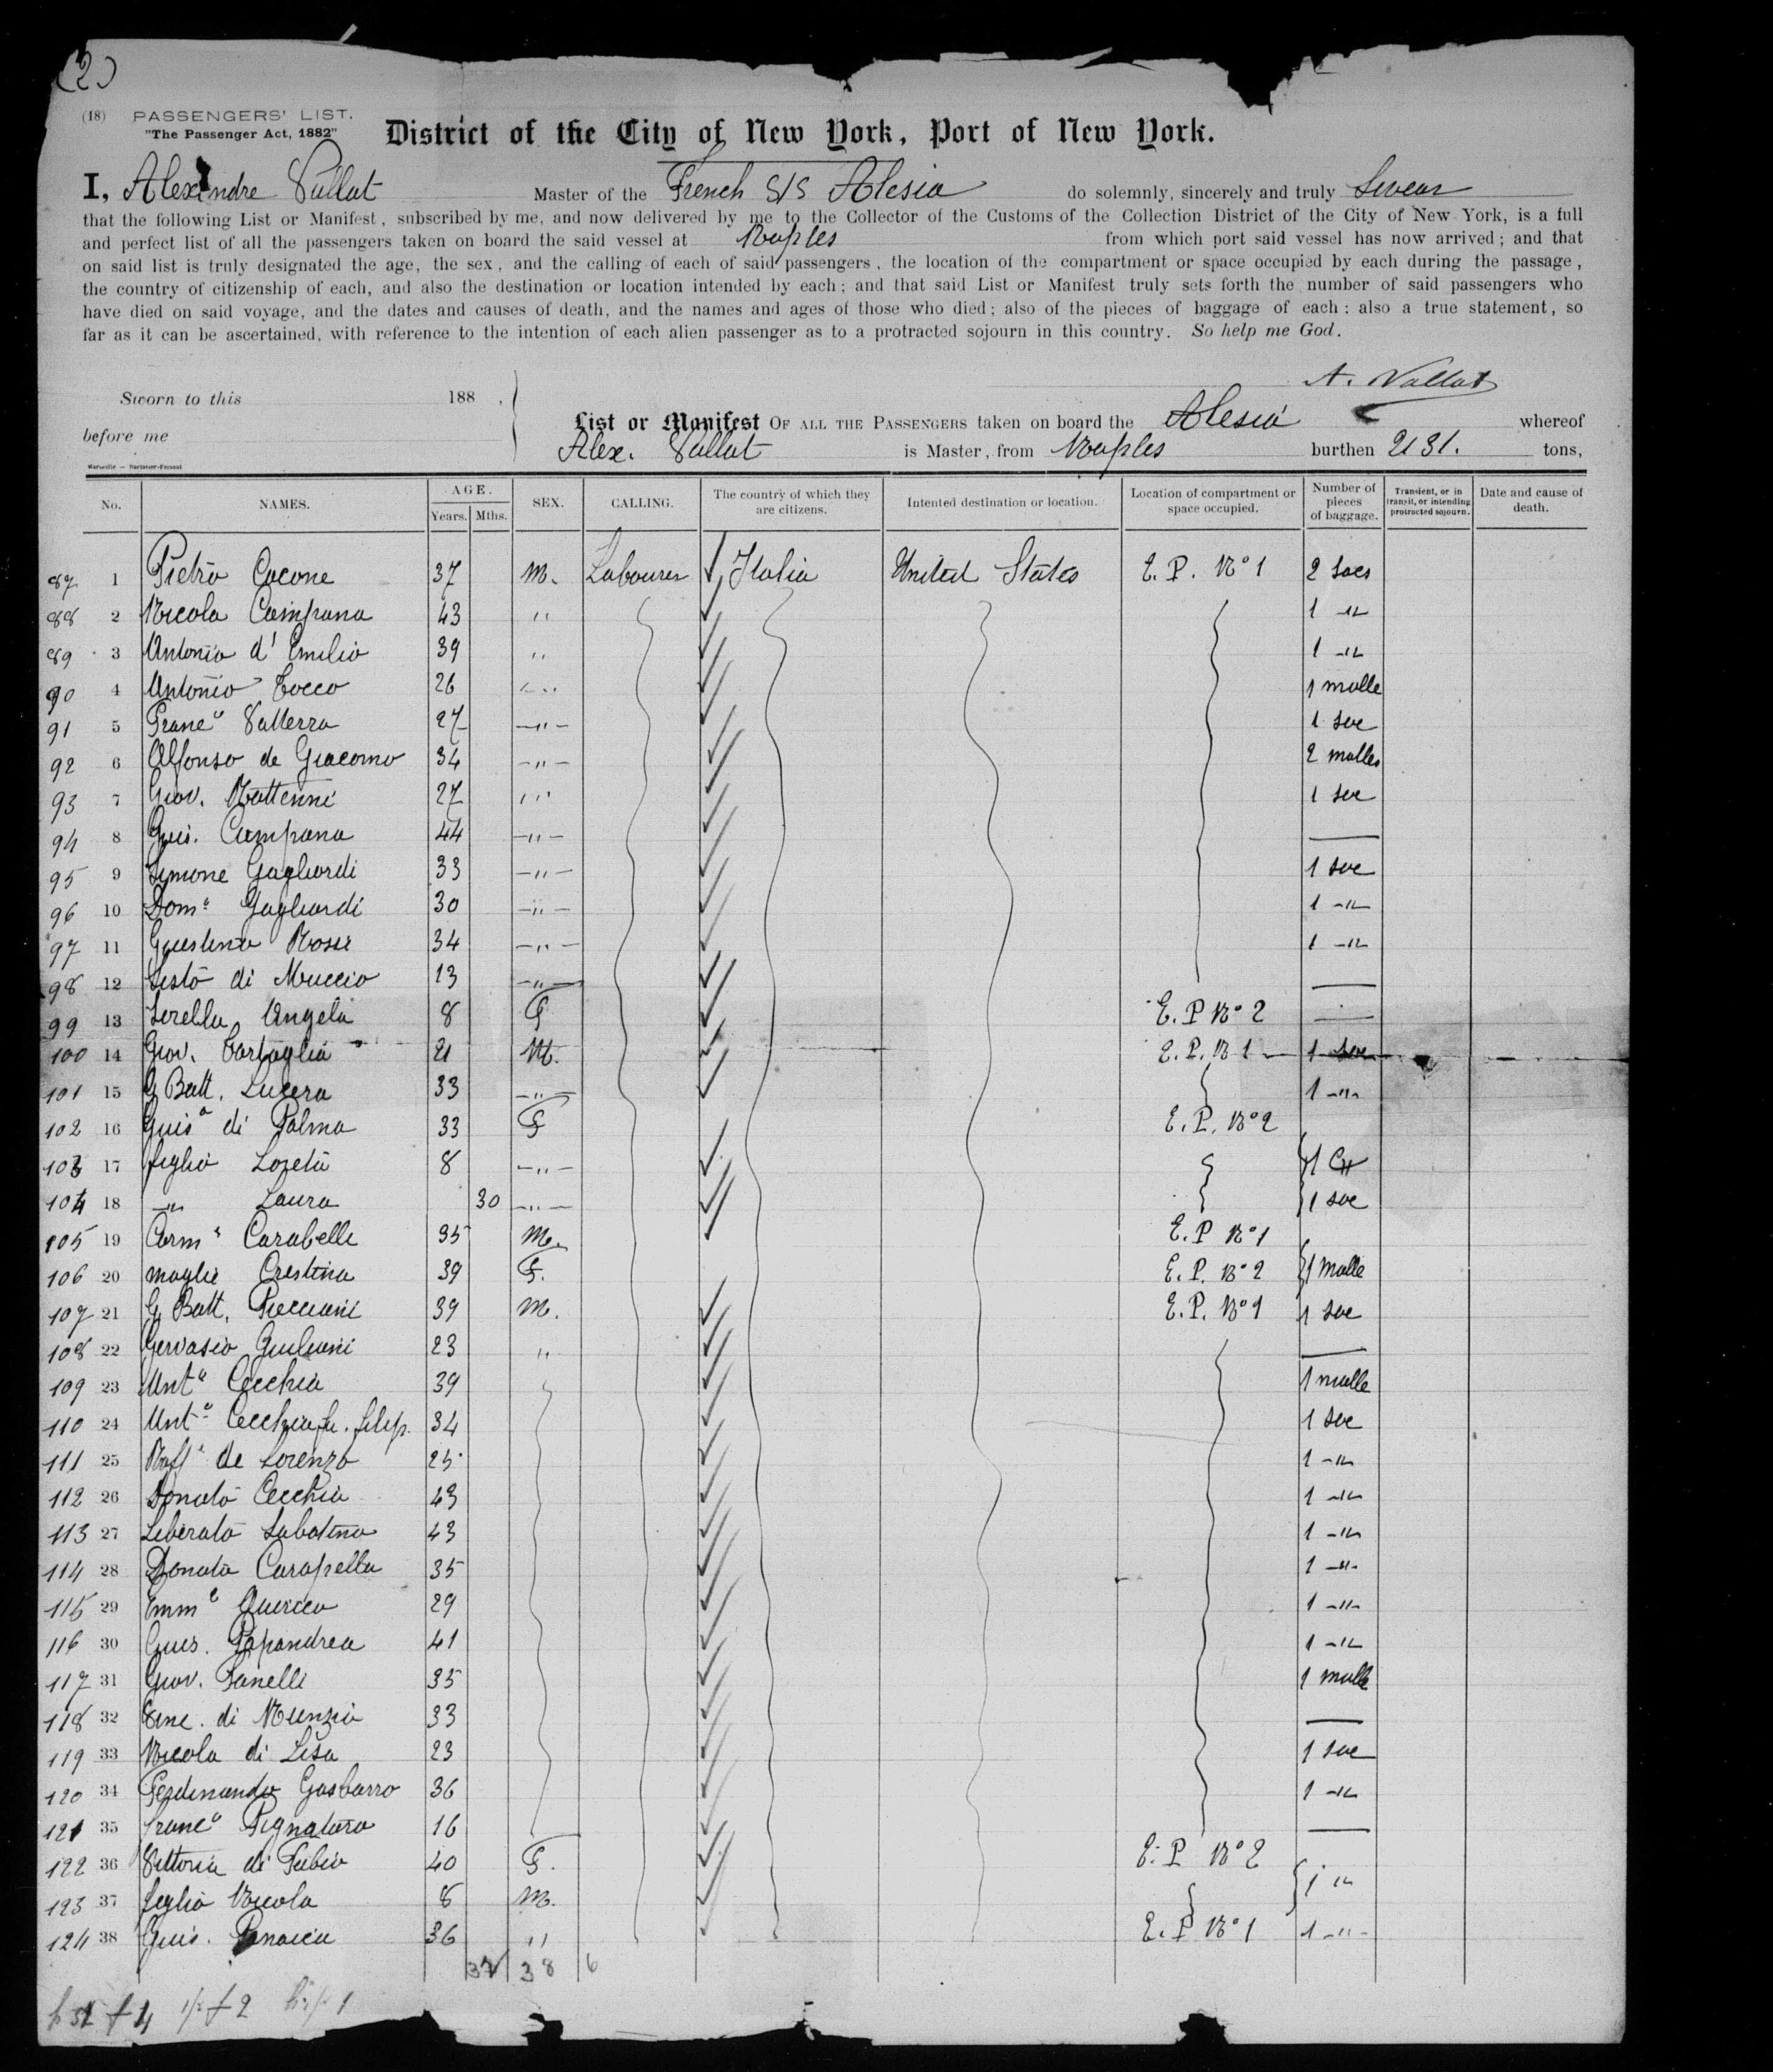 (2)
(18) PASSENGERS' LIST.
"The Passenger Act, 1882"
District of the City of New York, Port of New York.
I, Alexandre Vallat Master of the French S/S Alesia do solemnly, sincerely and truly Swear
that the following List or Manifest, subscribed by me, and now delivered by me to the Collector of the Customs of the Collection District of the City of New York, is a full
and perfect list of all the passengers taken on board the said vessel at Naples from which port said vessel has now arrived; and that
on said list is truly designated the age, the sex, and the calling of each of said passengers, the location of the compartment or space occupied by each during the passage,
the country of citizenship of each, and also the destination or location intended by each; and that said List or Manifest truly sets forth the number of said passengers who
have died on said voyage, and the dates and causes of death, and the names and ages of those who died; also of the pieces of baggage of each: also a true statement, so
far as it can be ascertained, with reference to the intention of each alien passenger as to a protracted sojourn in this country. So help me God.
A. Vallat
Sworn to this 188 ,
before me
List or Manifest OF ALL THE PASSENGERS taken on board the Alesia whereof
Alex. Vallat is Master, from Naples burthen 2131. tons,
No. NAMES. AGE. Years. Mths. SEX. CALLING. The country of which they are citizens. Intented destination or location. Location of compartment or space occupied. Number of pieces of baggage. Transient, or in transit, or intending protracted sojourn. Date and cause of death.
87 1 Pietro Cocone 37 M. Labourer Italia United States E. P. No 1 2 sacs
88 2 Nicola Campana 43 " 1 "
89 3 Antonio d'Emilio 39 " 1 "
90 4 Antonio Tocco 26 " 1 malle
91 5 Franco Valterra 27 " 1 sac
92 6 Alfonso de Giacomo 34 " 2 malles
93 7 Giov. Mattenni 27 " 1 sac
94 8 Guis. Campana 44 " —
95 9 Symone Gagliardi 33 " 1 sac
96 10 Domo Gagliardi 30 " 1 "
97 11 Giustino Rossi 34 " 1 "
98 12 Sisto di Muccio 13 " —
99 13 Sorella Angela 8 F E. P No 2 —
100 14 Giov. Tartaglia 21 M. E. P. N 1 1 sac
101 15 G Batt. Lucera 33 " 1 "
102 16 Guisa di Palma 33 F E. P. No 2
103 17 figlia Loreta 8 " 1 
104 18 " Laura 30 " 1 sac
105 19 Carmo Carabelli 35 M. E. P No 1
106 20 moglie Crestina 39 F. E. P. No 2 1 malle
107 21 G Batt. Picciani 39 M. E. P. No 1 1 sac
108 22 Gervasio Giuliani 23 " —
109 23 Anto Cecchia 39 1 malle
110 24 Anto Cecchia fu. filip. 34 1 sac
111 25 Raffe de Lorenzo 25 1 "
112 26 Donato Cecchia 43 1 "
113 27 Liberato Sabatino 43 1 "
114 28 Donato Carapella 35 1 "
115 29 Emme Quirico 29 1 "
116 30 Guis. Papandrea 41 1 "
117 31 Giov. Fanelli 35 1 malle
118 32 di Nunzio 33 —
119 33 Nicola di Lisa 23 1 sac
120 34 Ferdinando Gasbarro 36 1 "
121 35 Franco Pignataro 16 —
122 36 Vittoria di Fabio 40 F. E. P No 2 1 "
123 37 figlio Nicola 8 M.
124 38 Guis. Panaccia 36 " E. P No 1 1 "
37 38 6